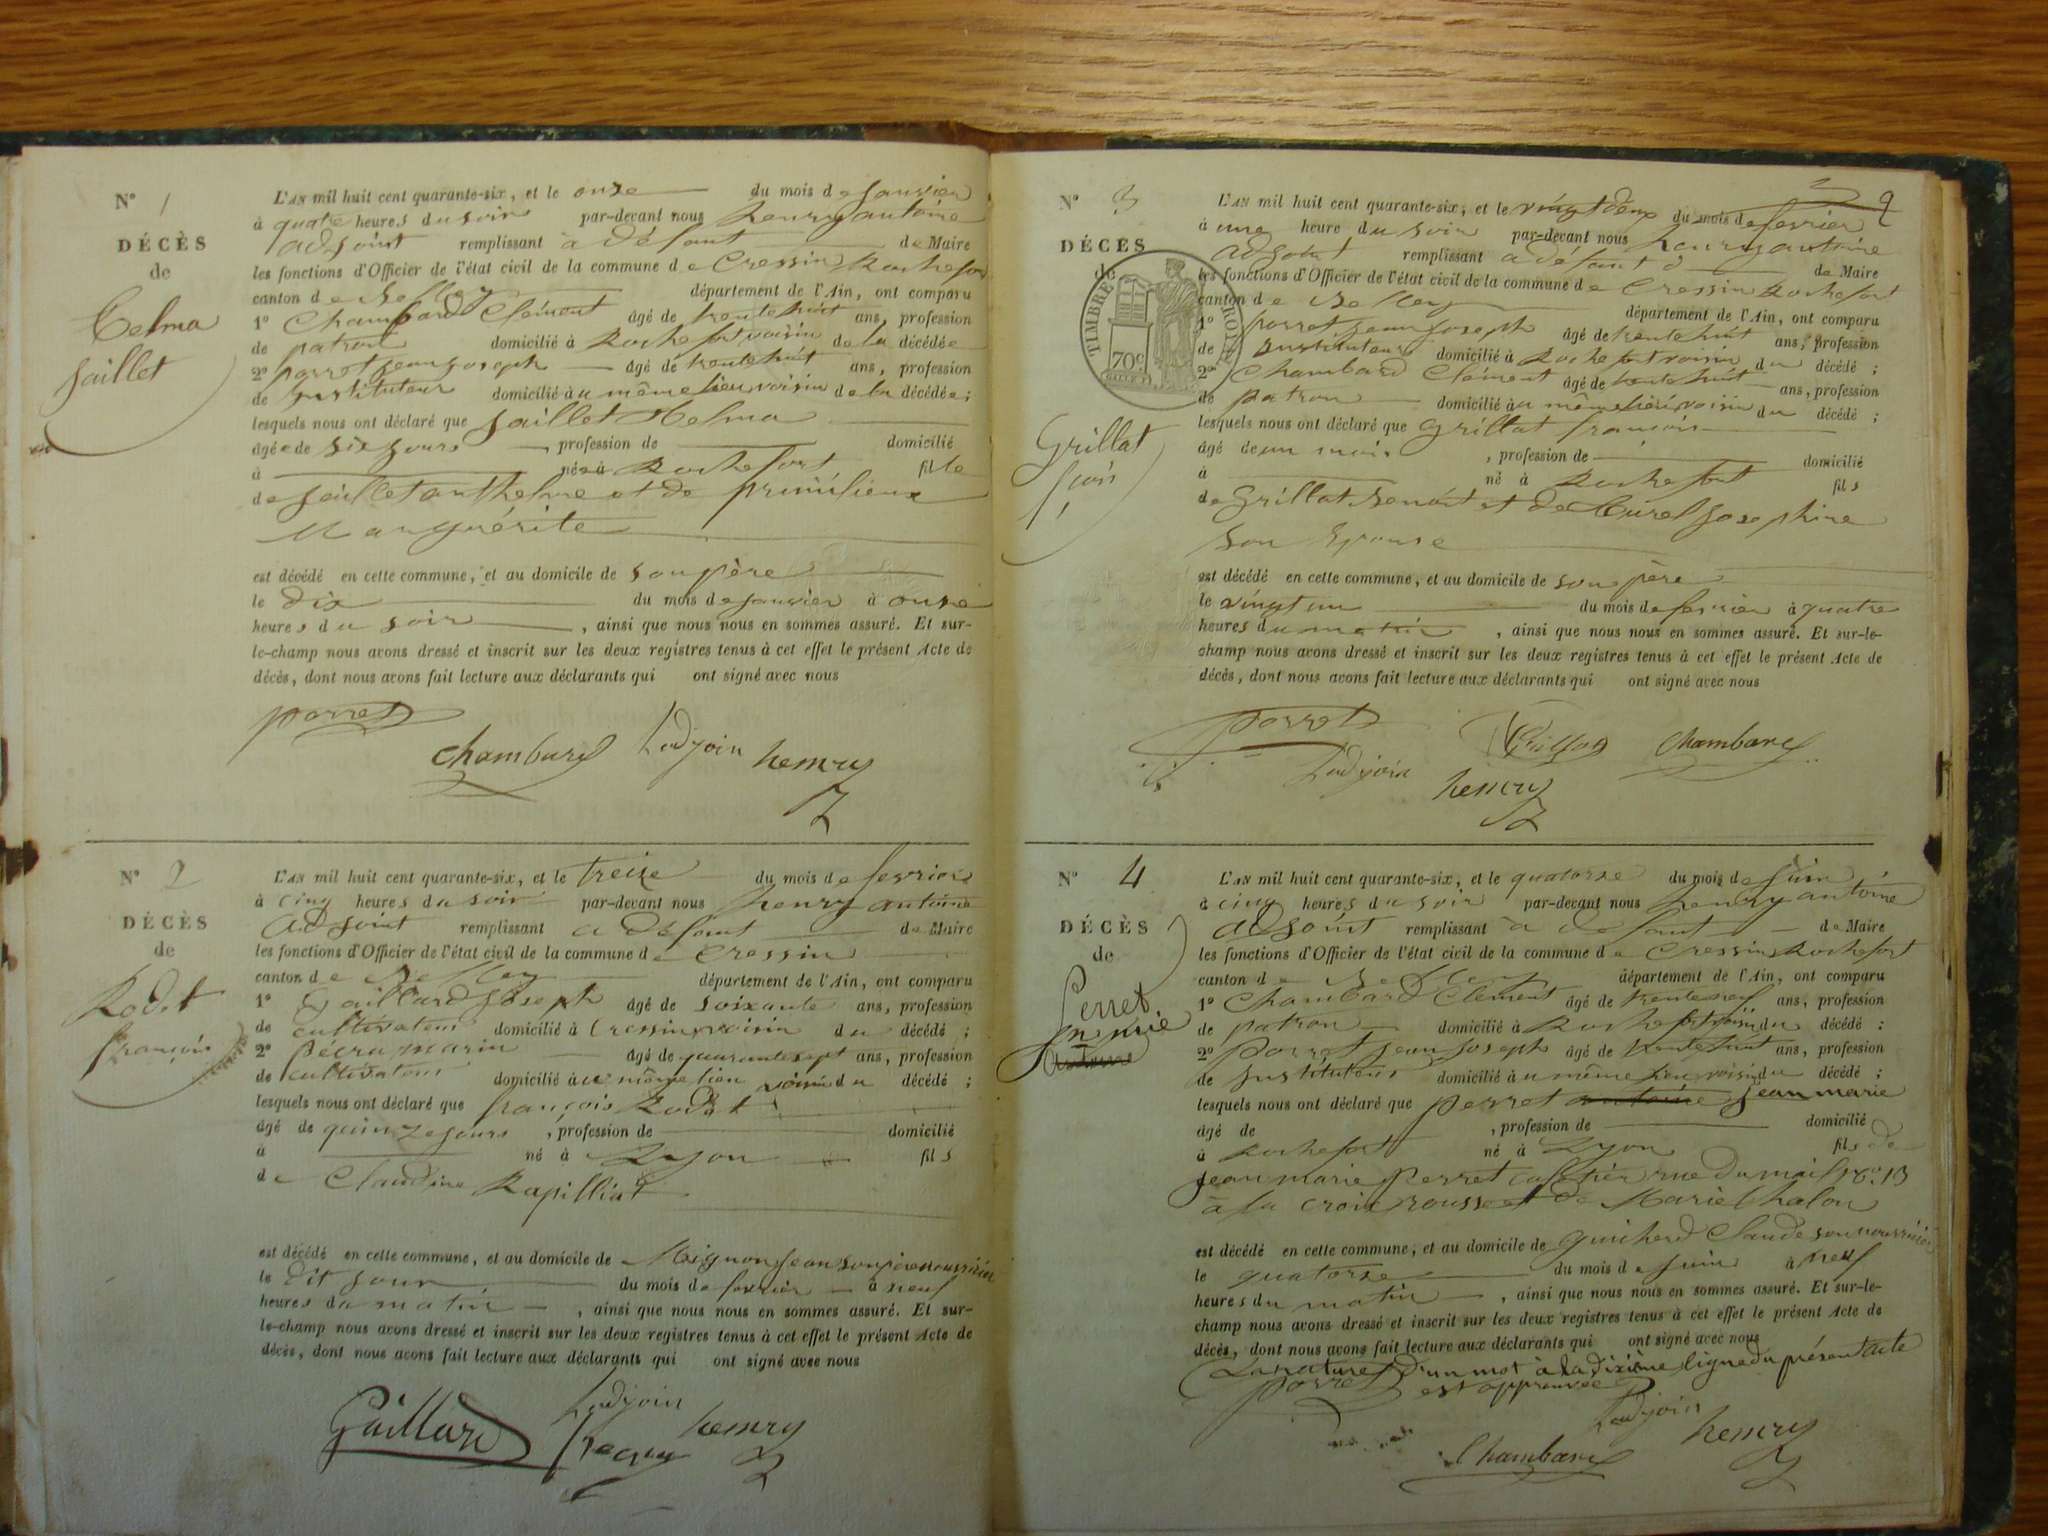 N° 1
DÉCÈS
de
Telma
Jaillet
L'AN mil huit cent quarante-six, et le onze du mois de janvier
à quatre heures du soir par-devant nous henry antoine
adjoint remplissant à défaut de Maire
les fonctions d'Officier de l'état civil de la commune de Cressin Rochefort
canton de Belley département de l'Ain, ont comparu
1° Chambard Clément âgé de trente huit ans, profession
de patron domicilié à Rochefort voisin de la décédée
2° porret jean joseph âgé de trente huit ans, profession
de instituteur domicilié au même lieu voisin de la décédée ;
lesquels nous ont déclaré que Jaillet Telma
âgée de six jours profession de domicilié
à née à Rochefort fille
de Jaillet anthelme et de
Marguérite
est décédé en cette commune, et au domicile de son père
le dix du mois de janvier à onze
heures du soir , ainsi que nous nous en sommes assuré. Et sur-
le-champ nous avons dressé et inscrit sur les deux registres tenus à cet effet le présent Acte de
décès, dont nous avons fait lecture aux déclarants qui ont signé avec nous
porret
chambard L'adjoin henry
N° 2
DÉCÈS
de
Rodet
françois
L'AN mil huit cent quarante-six, et le treize du mois de fevrier
à cinq heures du soir par-devant nous henry antoine
adjoint remplissant a défaut de Maire
les fonctions d'Officier de l'état civil de la commune de Cressin
canton de Belley département de l'Ain, ont comparu
1° Gaillard Joseph âgé de soixante ans, profession
de cultivateur domicilié à Cressin voisin du décédé ;
2° pécru marin âgé de quarante sept ans, profession
de cultivateur domicilié au même lieu voisin du décédé ;
lesquels nous ont déclaré que françois Rodet
âgé de quinze jours , profession de domicilié
à né à Lyon fils
de Claudine Rapilliat
est décédé en cette commune, et au domicile de Mignon jean son père nourricier
le dit jour du mois de fevrier à neuf
heures du matin , ainsi que nous nous en sommes assuré. Et sur-
le-champ nous avons dressé et inscrit sur les deux registres tenus à cet effet le présent Acte de
décès, dont nous avons fait lecture aux déclarants qui ont signé avec nous
L'adjoin
Gaillard henry
N° 3
2
DÉCÈS
de
TIMBRE ROYAL
70c
Grillat
fçois
L'AN mil huit cent quarante-six, et le vingt deux du mois de fevrier
à une heure du soir par-devant nous henry antoine
adjoint remplissant à défaut d de Maire
les fonctions d'Officier de l'état civil de la commune de Cressin Rochefort
canton de Belley département de l'Ain, ont comparu
1° porret jean joseph âgé de trente huit ans, profession
de instituteur domicilié à Rochefort voisin du décédé ;
2° Chambard Clément âgé de trente huit ans, profession
de patron domicilié au même lieu voisin du décédé ;
lesquels nous ont déclaré que Grillat françois
âgé de un mois , profession de domicilié
à né à Rochefort fils
de Grillat benoit et de Curel Josephine
son épouse
est décédé en cette commune, et au domicile de son père
le vingt un du mois de fevrier à quatre
heures du matin , ainsi que nous nous en sommes assuré. Et sur-le-
champ nous avons dressé et inscrit sur les deux registres tenus à cet effet le présent Acte de
décès, dont nous avons fait lecture aux déclarants qui ont signé avec nous
porret chambard
L'adjoin henry
N° 4
DÉCÈS
de
Perret
jn mie
L'AN mil huit cent quarante-six, et le quatorze du mois de juin
à cinq heures du soir par-devant nous henry antoine
adjoint remplissant à défaut de Maire
les fonctions d'Officier de l'état civil de la commune de Cressin Rochefort
canton de Belley département de l'Ain, ont comparu
1° Chambard Clément âgé de trente neuf ans, profession
de patron domicilié à Rochefort voisin du décédé ;
2° Porret jean joseph âgé de trente huit ans, profession
de instituteur domicilié au même lieu voisin du décédé ;
lesquels nous ont déclaré que perret antoine jean marie
âgé de , profession de domicilié
à Rochefort né à Lyon fils de
jean marie perret cafetier rue du mail No. 13
à la croix rousse et de Marie Chalon
est décédé en cette commune, et au domicile de guicherd Claude son nourricier
le quatorze du mois de juin à neuf
heures du matin , ainsi que nous nous en sommes assuré. Et sur-le-
champ nous avons dressé et inscrit sur les deux registres tenus à cet effet le présent Acte de
décès, dont nous avons fait lecture aux déclarants qui ont signé avec nous
La rature d'un mot à la dixième ligne du présent acte
porret est approuvée
L'adjoin
Chambard henry